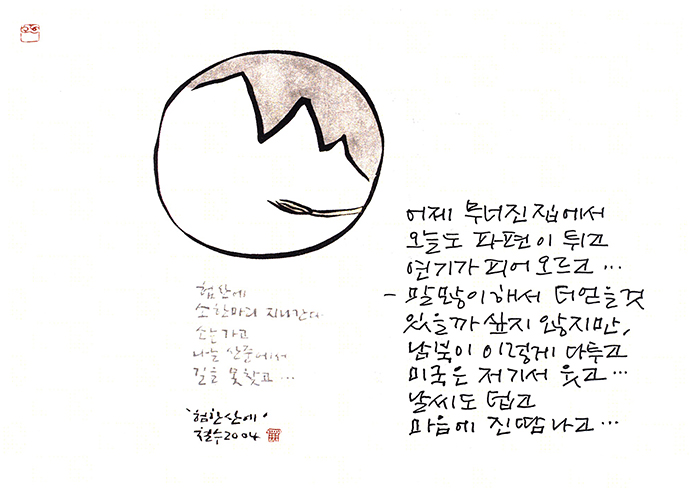 험산에
소 한마리 지나간다.
소는 가고
나는 산중에서
길을 못찾고...
'험한산에'
철수2004
어제 무너진집에서
오늘도 파편이 튀고
연기가 피어 오르고...
- 말많이해서 더얻을것
있을까 싶지 않지만,
남북이 이렇게 다투고
미국은 저기서 웃고...
날씨도 덥고
마음에 진땀나고...